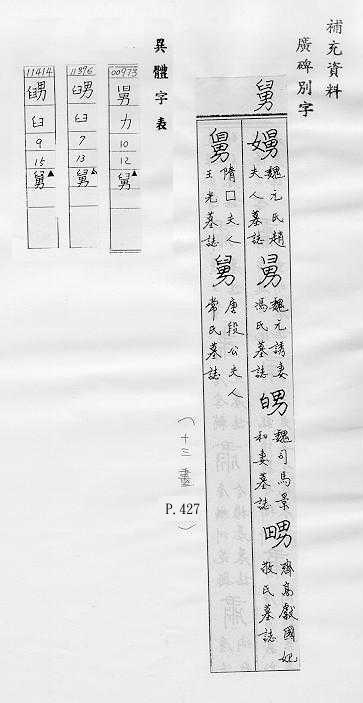 補充資料
廣碑別字
舅
魏元氏趙夫人墓誌
魏元誘妻馮氏墓誌
魏司馬景和妻墓誌
齊高獻國妃敬氏墓誌
舅
隋口夫人王光墓誌
舅
唐段公夫人常氏墓誌
(十三畫)
P.427
異體字表
00973
力
10
12
舅▲
11396
臼
7
13
舅▲
11414
臼
9
15
舅▲